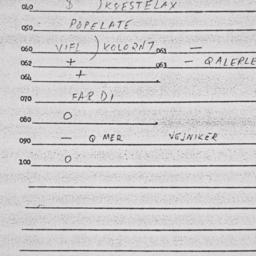 040 D )KSFSTELAX
050 POPELATE
060 VIFL ) KOLORNT 061 —
062 + 063 — QALEPLE
064 +
070 FARDI
080 O
090 — QMER VEJNIKER
100 O